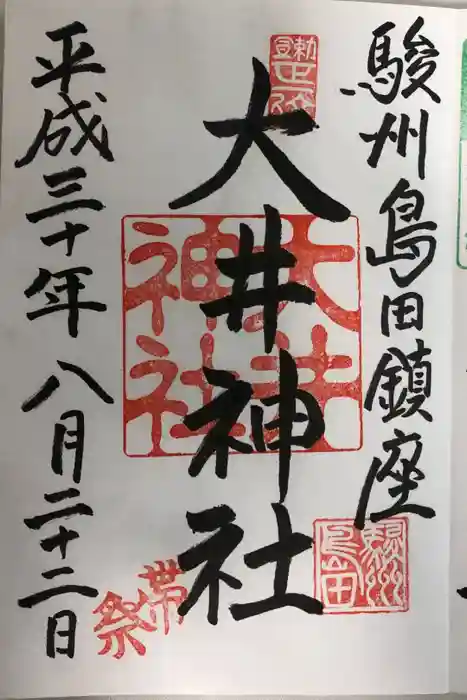 駿州島田鎮座
大井神社
大井神社
駿州島田
平成三十年八月二十二日
帯祭